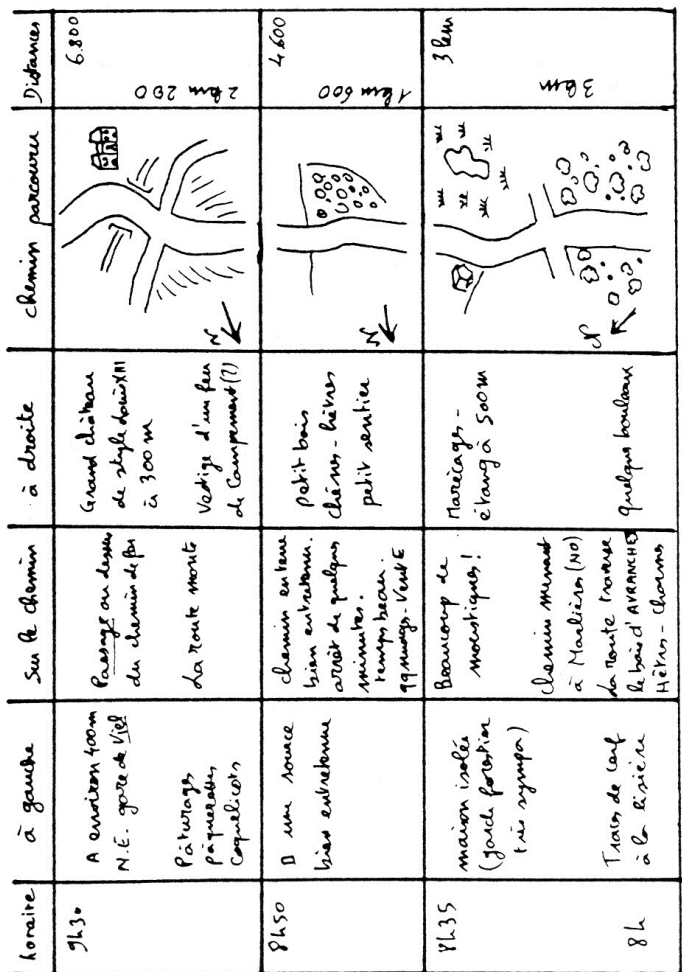 horaire
à gauche
sur le chemin
à droite
chemin parcouru
Distances
9h30
A environ 400m
N.E. gare de Viel
Pâturages
pâquerettes
coquelicots
Passage au dessus
du chemin de fer
La route monte
Grand château
de style Louis XIII
à 300 m
Vestige d'un feu
de campement (?)
N
6.800
2 km 200
8h50
une source
bien entretenue
chemin en terre
bien entretenu.
arrêt de quelques
minutes.
temps beau.
qq nuages - Vent E
petit bois
chênes - hêtres
petit sentier
N
4.600
1 km 600
8h35
maison isolée
(garde forestier
très sympa)
Beaucoup de
moustiques !
Marécages -
étang à 500m
3 km
8h
Traces de cerf
à la lisière
chemin menant
à Marlières (NO)
La route traverse
le bois d'AVRANCHES
Hêtres - Charmes
quelques bouleaux
N
3 km